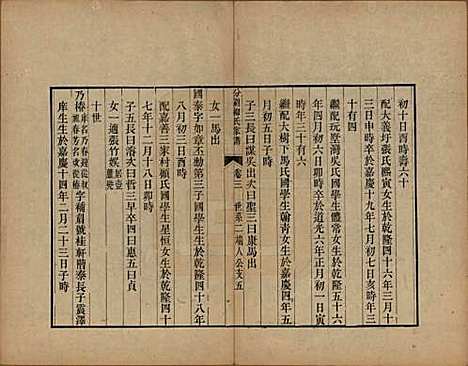 初十日酉時壽六十
配大義圩張氏熙寅女生於乾隆五十四年三月十
三日申時卒於嘉慶十九年七月初七日亥時年三
十有四
繼配玩墊灣吳氏國學生體常女生於乾隆五十六
年四月初六日卯時卒於道光六年正月初一日寅
時年三十有六
繼配大樹下馬氏國學生翰青女生於嘉慶四年五
月初五日子時
子三長曰謀吳出次曰聖三曰康馬出
分湖柳氏家譜
卷三
世系二
端人公支五
女一馬出
國泰字如章丕勳第三子國學生生於乾隆四十八年
八月初三日酉時
配嘉善三家村顧氏國學生星恒女生於乾隆四十
七年十二月十八日卯時
子五長曰濬次曰哲三早卒四曰惠五曰貞
女一適張竹娛
十世
乃椿
字補眉號桂軒階泰長子震澤
庠生生於嘉慶十四年二月二十三日子時